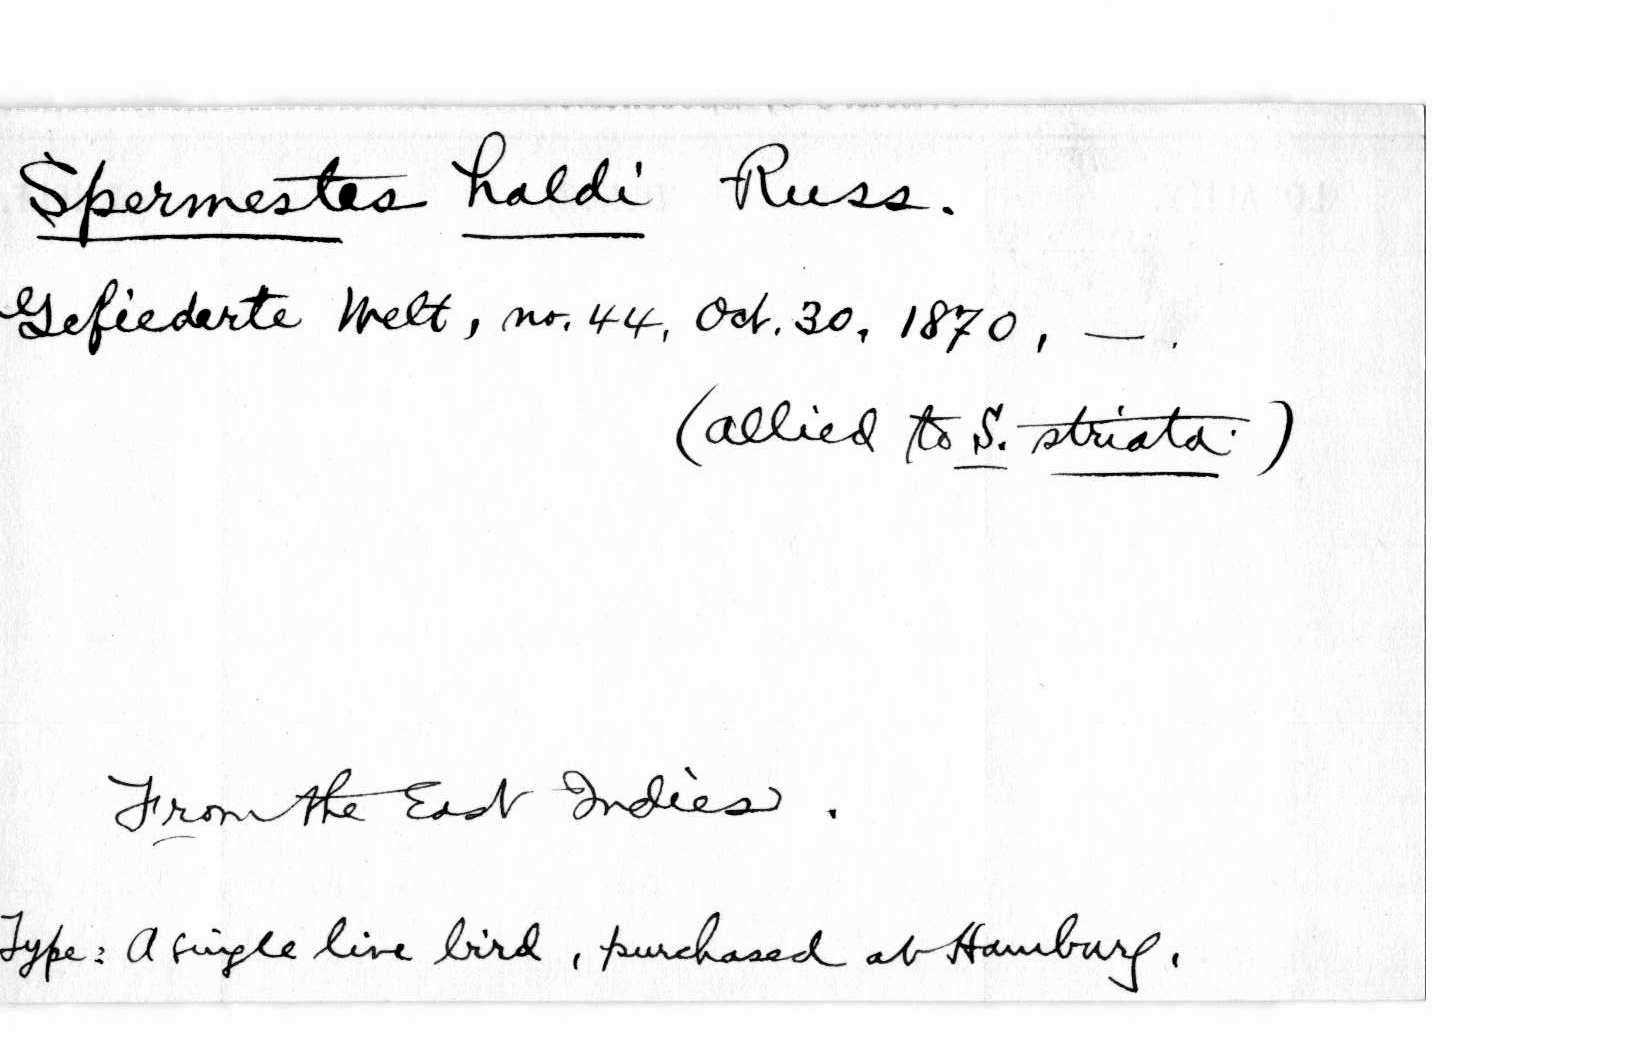 Spermestes haldi Russ.
Gefiederte Welt, no. 44, Oct. 30, 1870, — .
(allied to S. striata.)
From the East Indies.
Type: A single live bird, purchased at Hamburg.